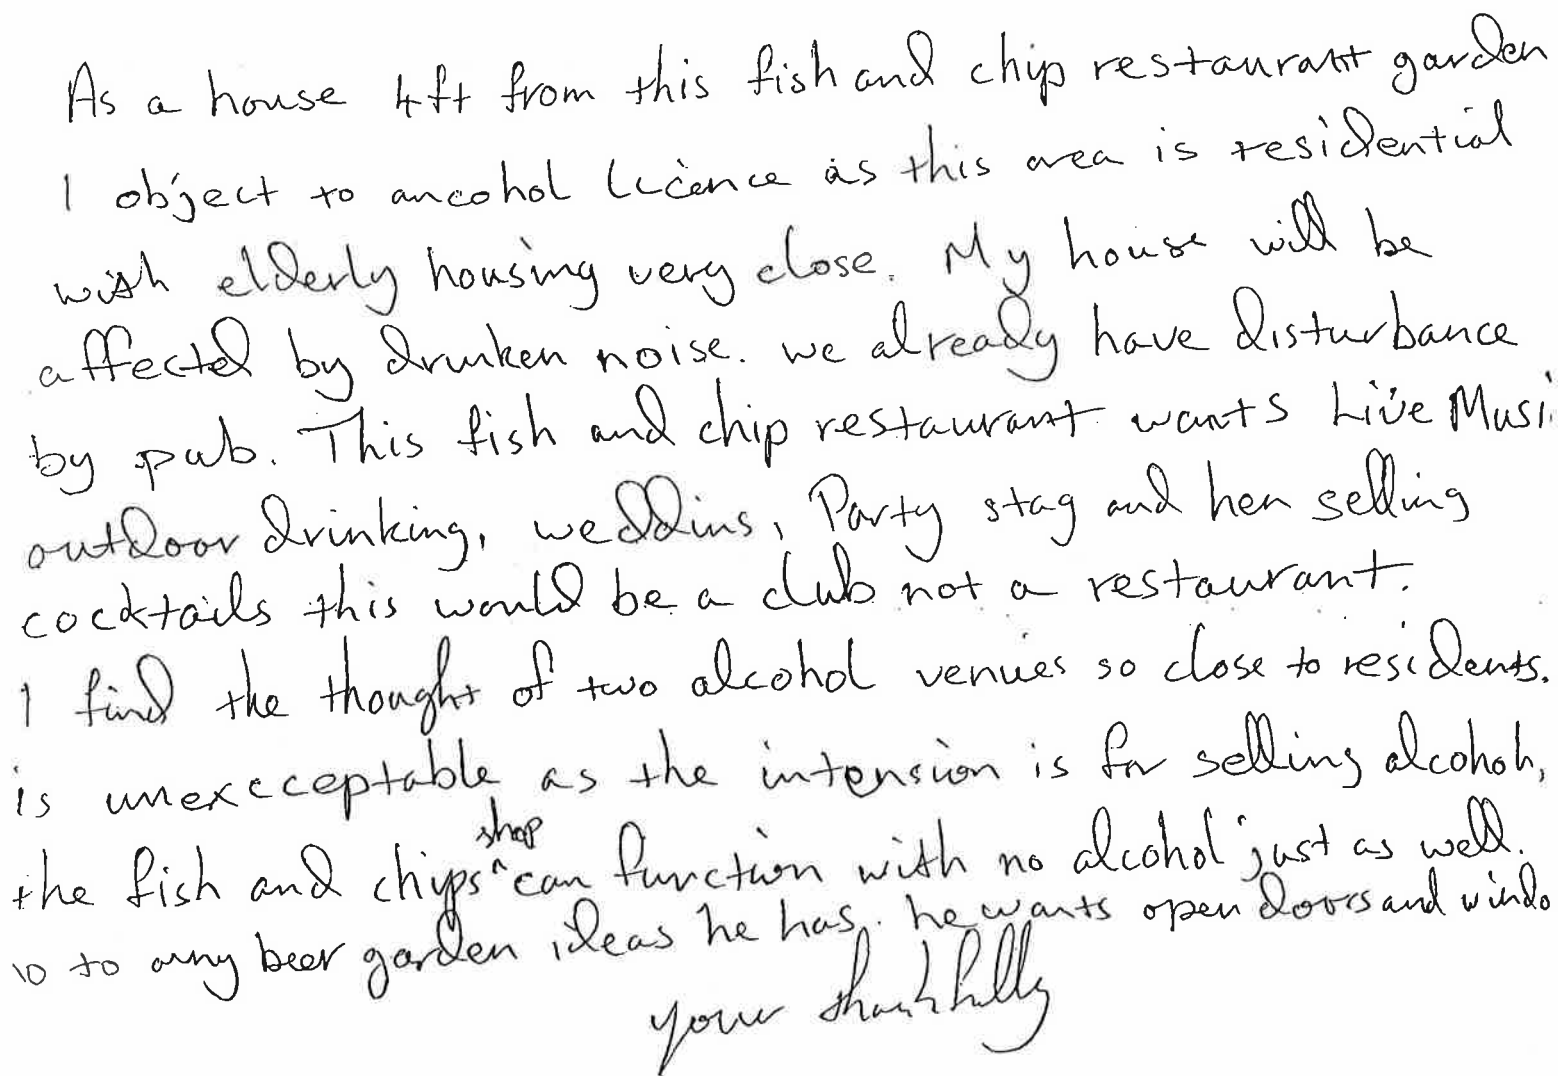 As a house 4ft from this fish and chip restaurant garden
I object to ancohol licence as this area is residential
with elderly housing very close. My house will be
affected by drunken noise. we already have disturbance
by pub. This fish and chip restaurant wants Live Musi
outdoor drinking, weddins, Party stag and hen selling
cocktails this would be a club not a restaurant.
I find the thought of two alcohol venues so close to residents.
is unexcceptable as the intension is for selling alcohoh,
the fish and chips ^shop can function with no alcohol just as well.
no to any beer garden ideas he has. he wants open doors and windo
your thankfully